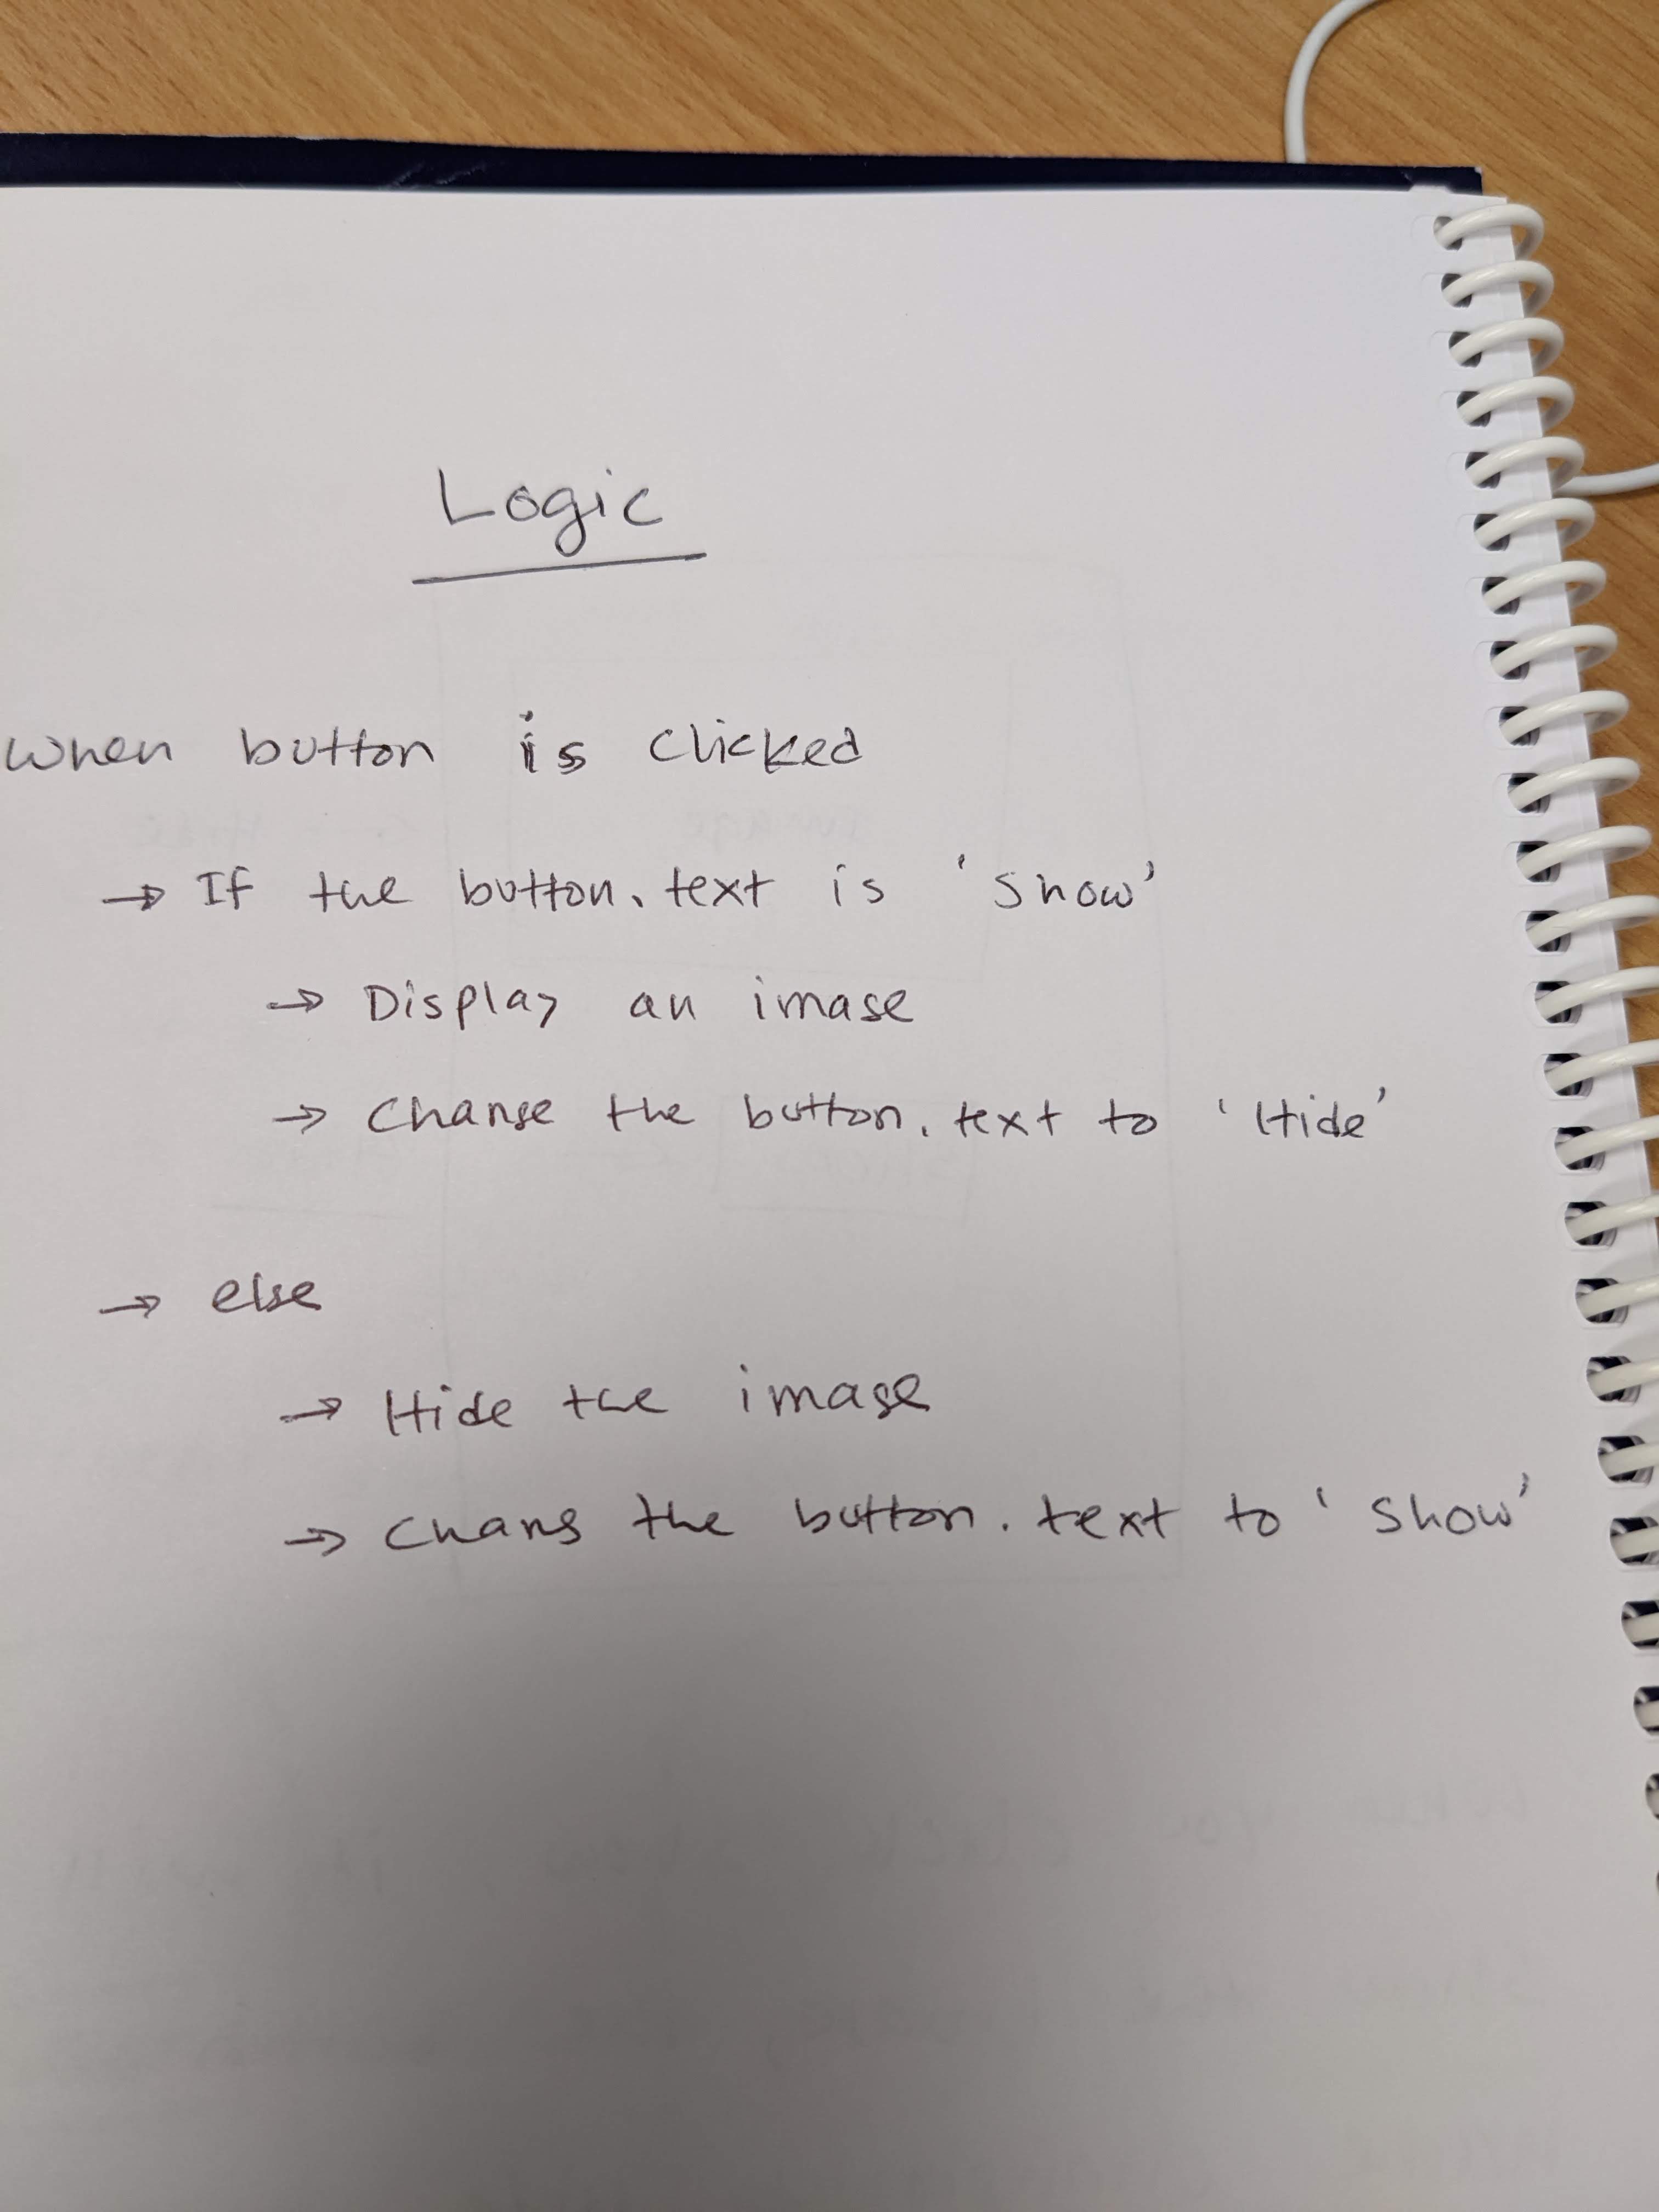 Logic
when button is clicked
→ If the button.text is 'show'
→ Display an image
→ Change the button.text to 'Hide'
→ else
→ Hide the image
→ Chang the button.text to 'show'